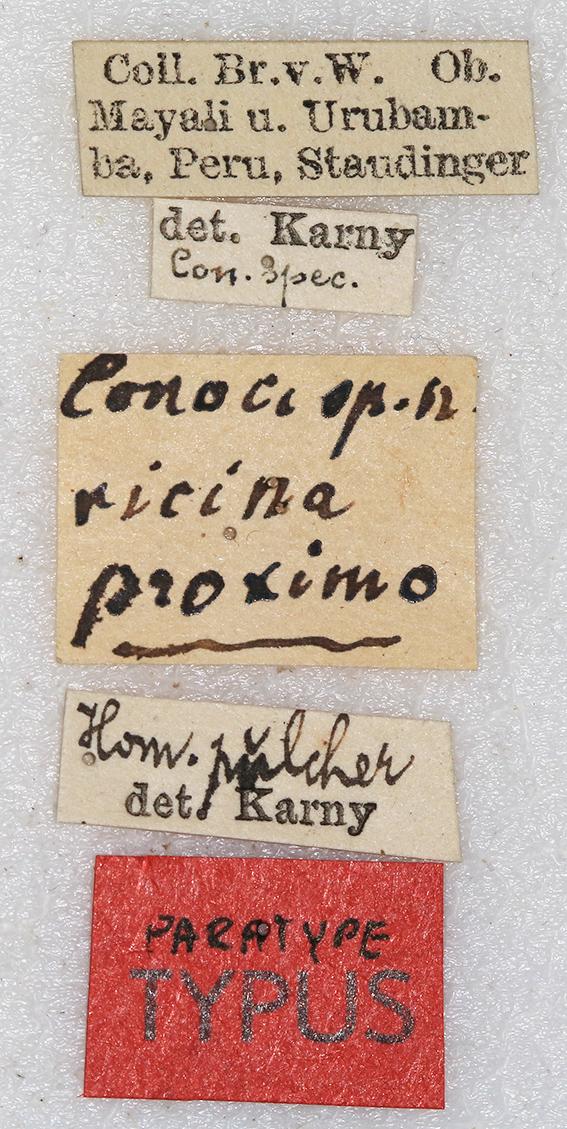 Coll. Br.v.W. Ob.
Mayali u. Urubam-
ba, Peru, Staudinger
det. Karny
Con. spec.
Conoci op. n.
ricina
proximo
Hom. pŭlcher
det. Karny
PARATYPE
TYPUS